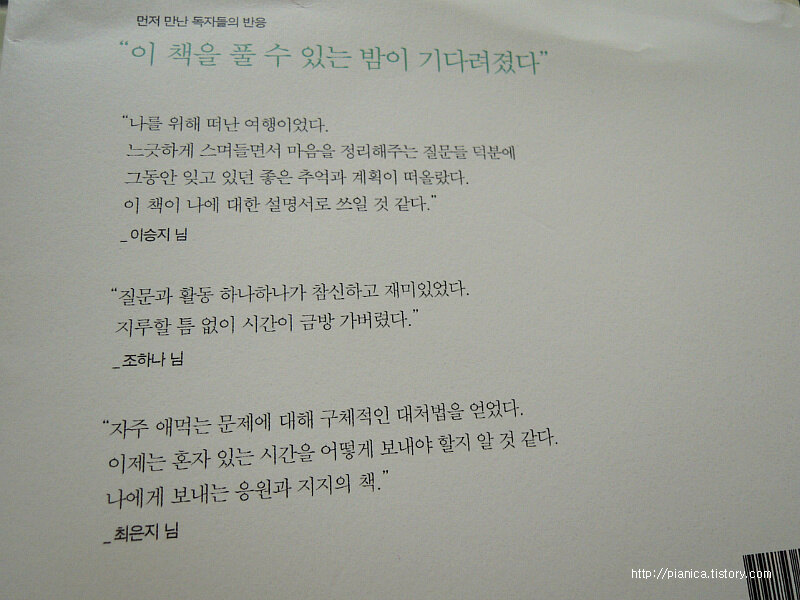 먼저 만난 독자들의 반응
“이 책을 풀 수 있는 밤이 기다려졌다”
“나를 위해 떠난 여행이었다.
느긋하게 스며들면서 마음을 정리해주는 질문들 덕분에
그동안 잊고 있던 좋은 추억과 계획이 떠올랐다.
이 책이 나에 대한 설명서로 쓰일 것 같다.”
_이승지 님
“질문과 활동 하나하나가 참신하고 재미있었다.
지루할 틈 없이 시간이 금방 가버렸다.”
_조하나 님
“자주 애먹는 문제에 대해 구체적인 대처법을 얻었다.
이제는 혼자 있는 시간을 어떻게 보내야 할지 알 것 같다.
나에게 보내는 응원과 지지의 책.”
_최은지 님
http://pianica.tistory.com